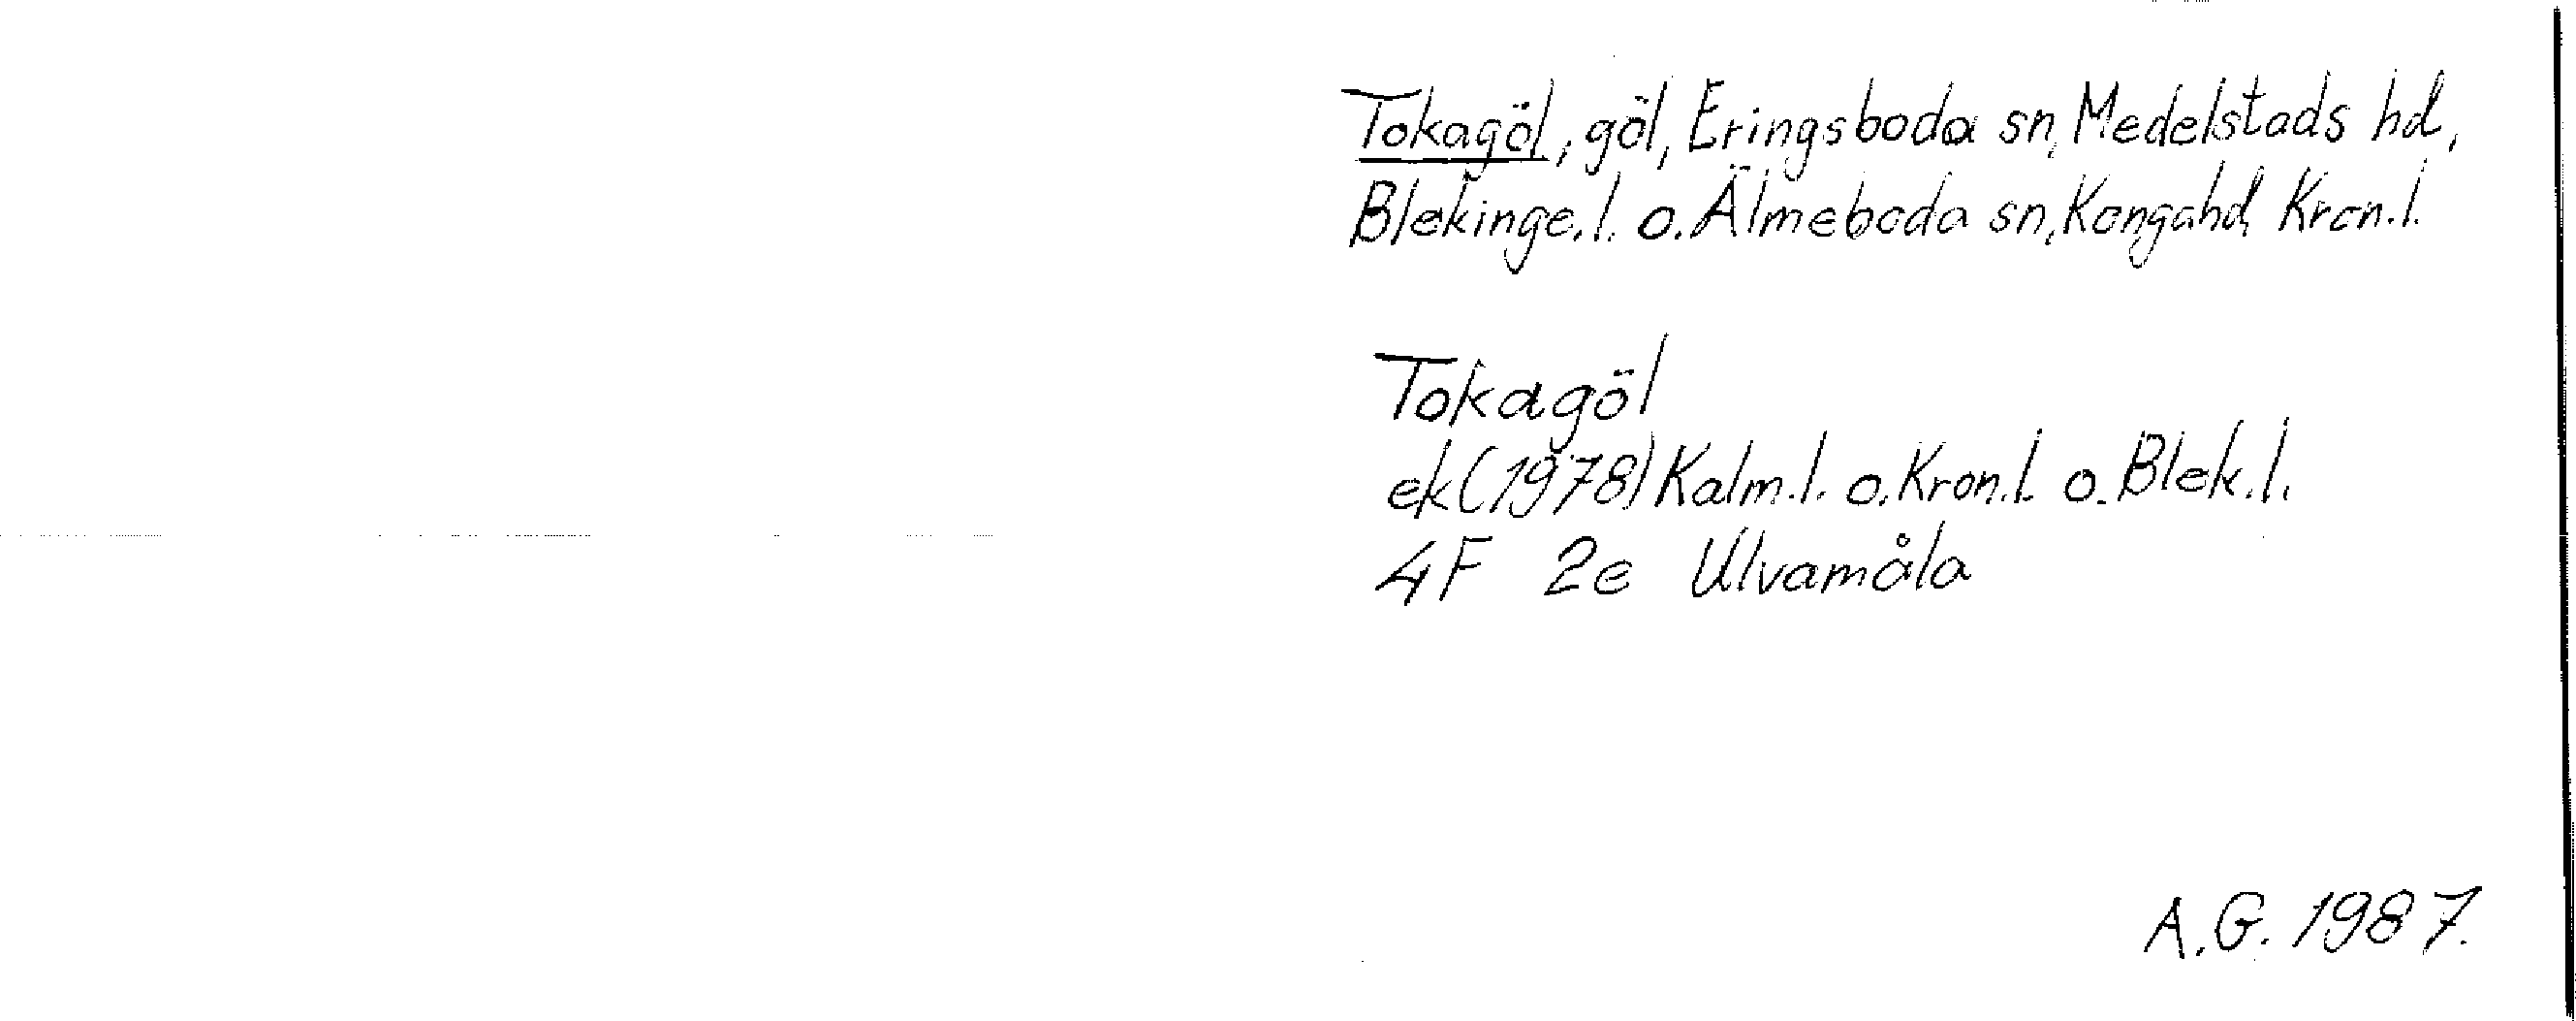 Tokagöl, göl, Eringsboda sn, Medelstads hd,
Blekinge.l. o. Älmeboda sn, Konga hd, Kron.l.
Tokagöl
ek (1978) Kalm.l. o. Kron.l. o. Blek.l.
4F 2e Ulvamåla
A.G. 1987.